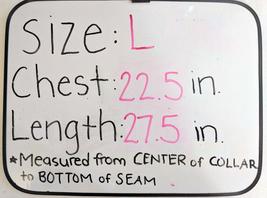 Size: L
Chest: 22.5 in.
Length: 27.5 in.
*Measured from CENTER of COLLAR
to BOTTOM of SEAM